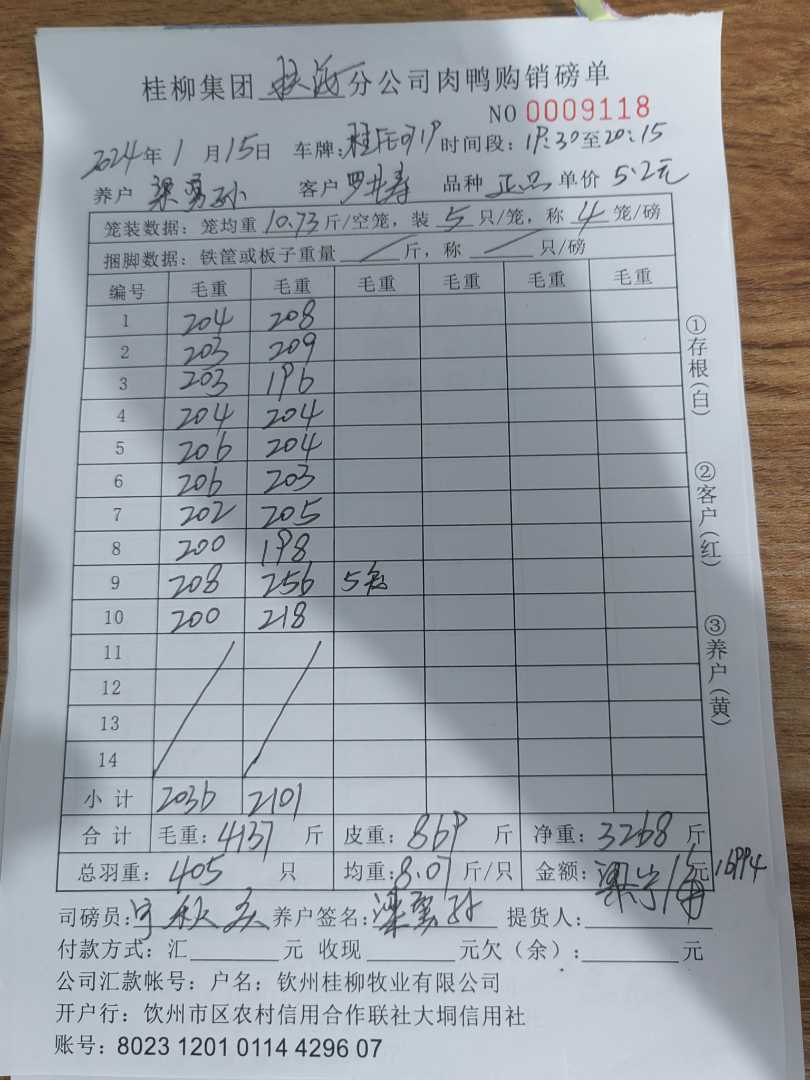 桂柳集团 分公司肉鸭购销磅单
NO 0009118
2024年1月15日 车牌: 时间段:19:30至20:15
养户 梁勇孙 客户 罗共寿 品种 正品 单价 5.2元
笼装数据:笼均重 10.73 斤/空笼,装 5 只/笼,称 4 笼/磅
捆脚数据:铁筐或板子重量 / 斤,称 / 只/磅
编号 毛重 毛重 毛重 毛重 毛重 毛重
1 204 208
2 203 209
3 203 196
4 204 204
5 206 204
6 206 203
7 202 205
8 200 198
9 208 256 5笼
10 200 218
11
12
13
14
小计 2036 2101
合计 毛重:4137 斤 皮重:869 斤 净重:3268 斤
总羽重:405 只 均重:8.07 斤/只 金额: 元 16994
司磅员: 养户签名:梁勇孙 提货人:
付款方式:汇 元 收现 元欠(余): 元
公司汇款帐号:户名:钦州桂柳牧业有限公司
开户行:钦州市区农村信用合作联社大垌信用社
账号:8023 1201 0114 4296 07
①存根(白)
②客户(红)
③养户(黄)